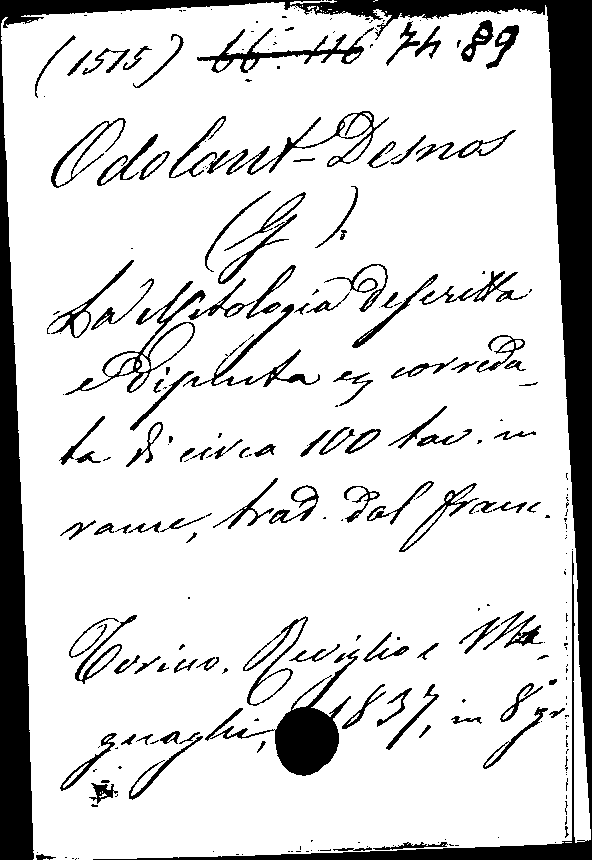 (1515) 66. 116 74.89
Odolant-Desnos
(G).
La Mitologia descritta
e dipinta e correda-
ta di circa 100 tav. in
rame, trad. dal franc.
Torino, Reviglio e Ma-
gnaghi, 1837, in 8° gr